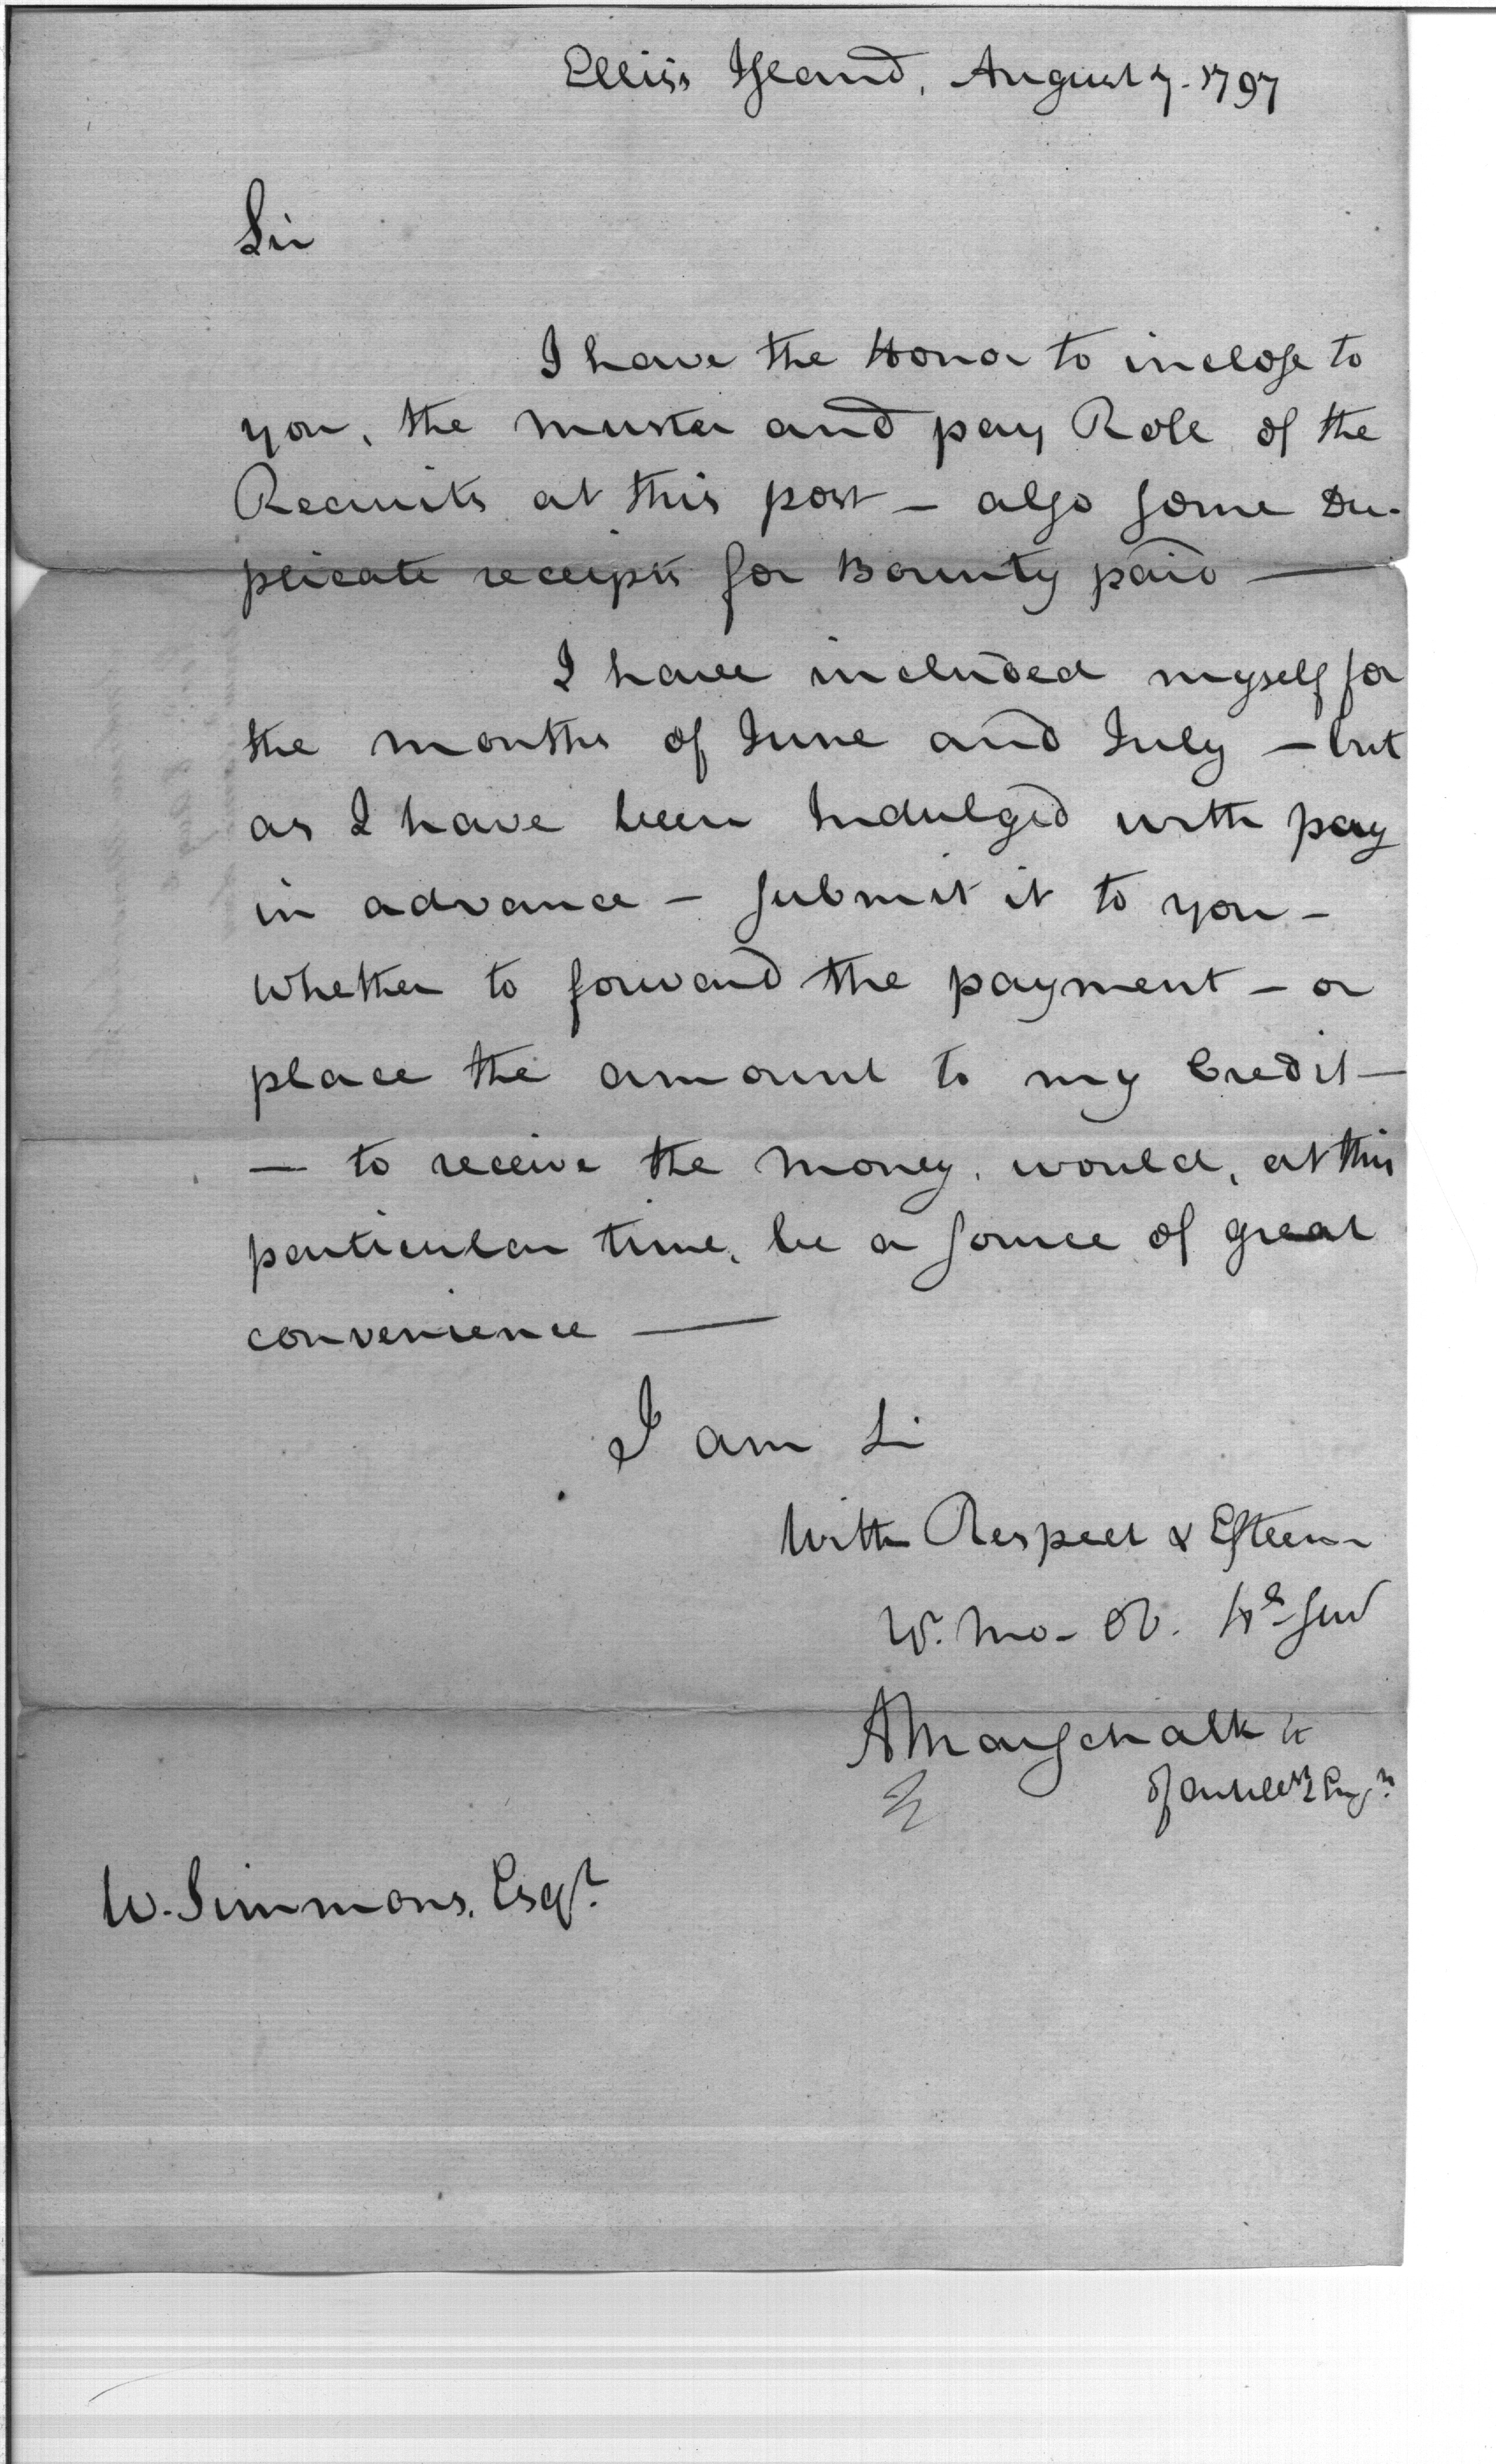 Elliss Island, August 7. 1797
Sir
I have the Honor to inclose to
you, the muster and pay Role of the
Recruits at this post – also some Du-
plicate receipts for Bounty paid —
I have included myself for
the months of June and July – but
as I have been Indulged with pay
in advance – submit it to you –
whether to forward the payment – or
place the amount to my Credit –
— to receive the money, would, at this
particular time, be a source of great
convenience —
I am Sir
With Respect & Esteem
Yr. Mo- Ob. He Serv
AMarschalk Lt
of Artillery & Engrs
W. Simmons, Esqr.